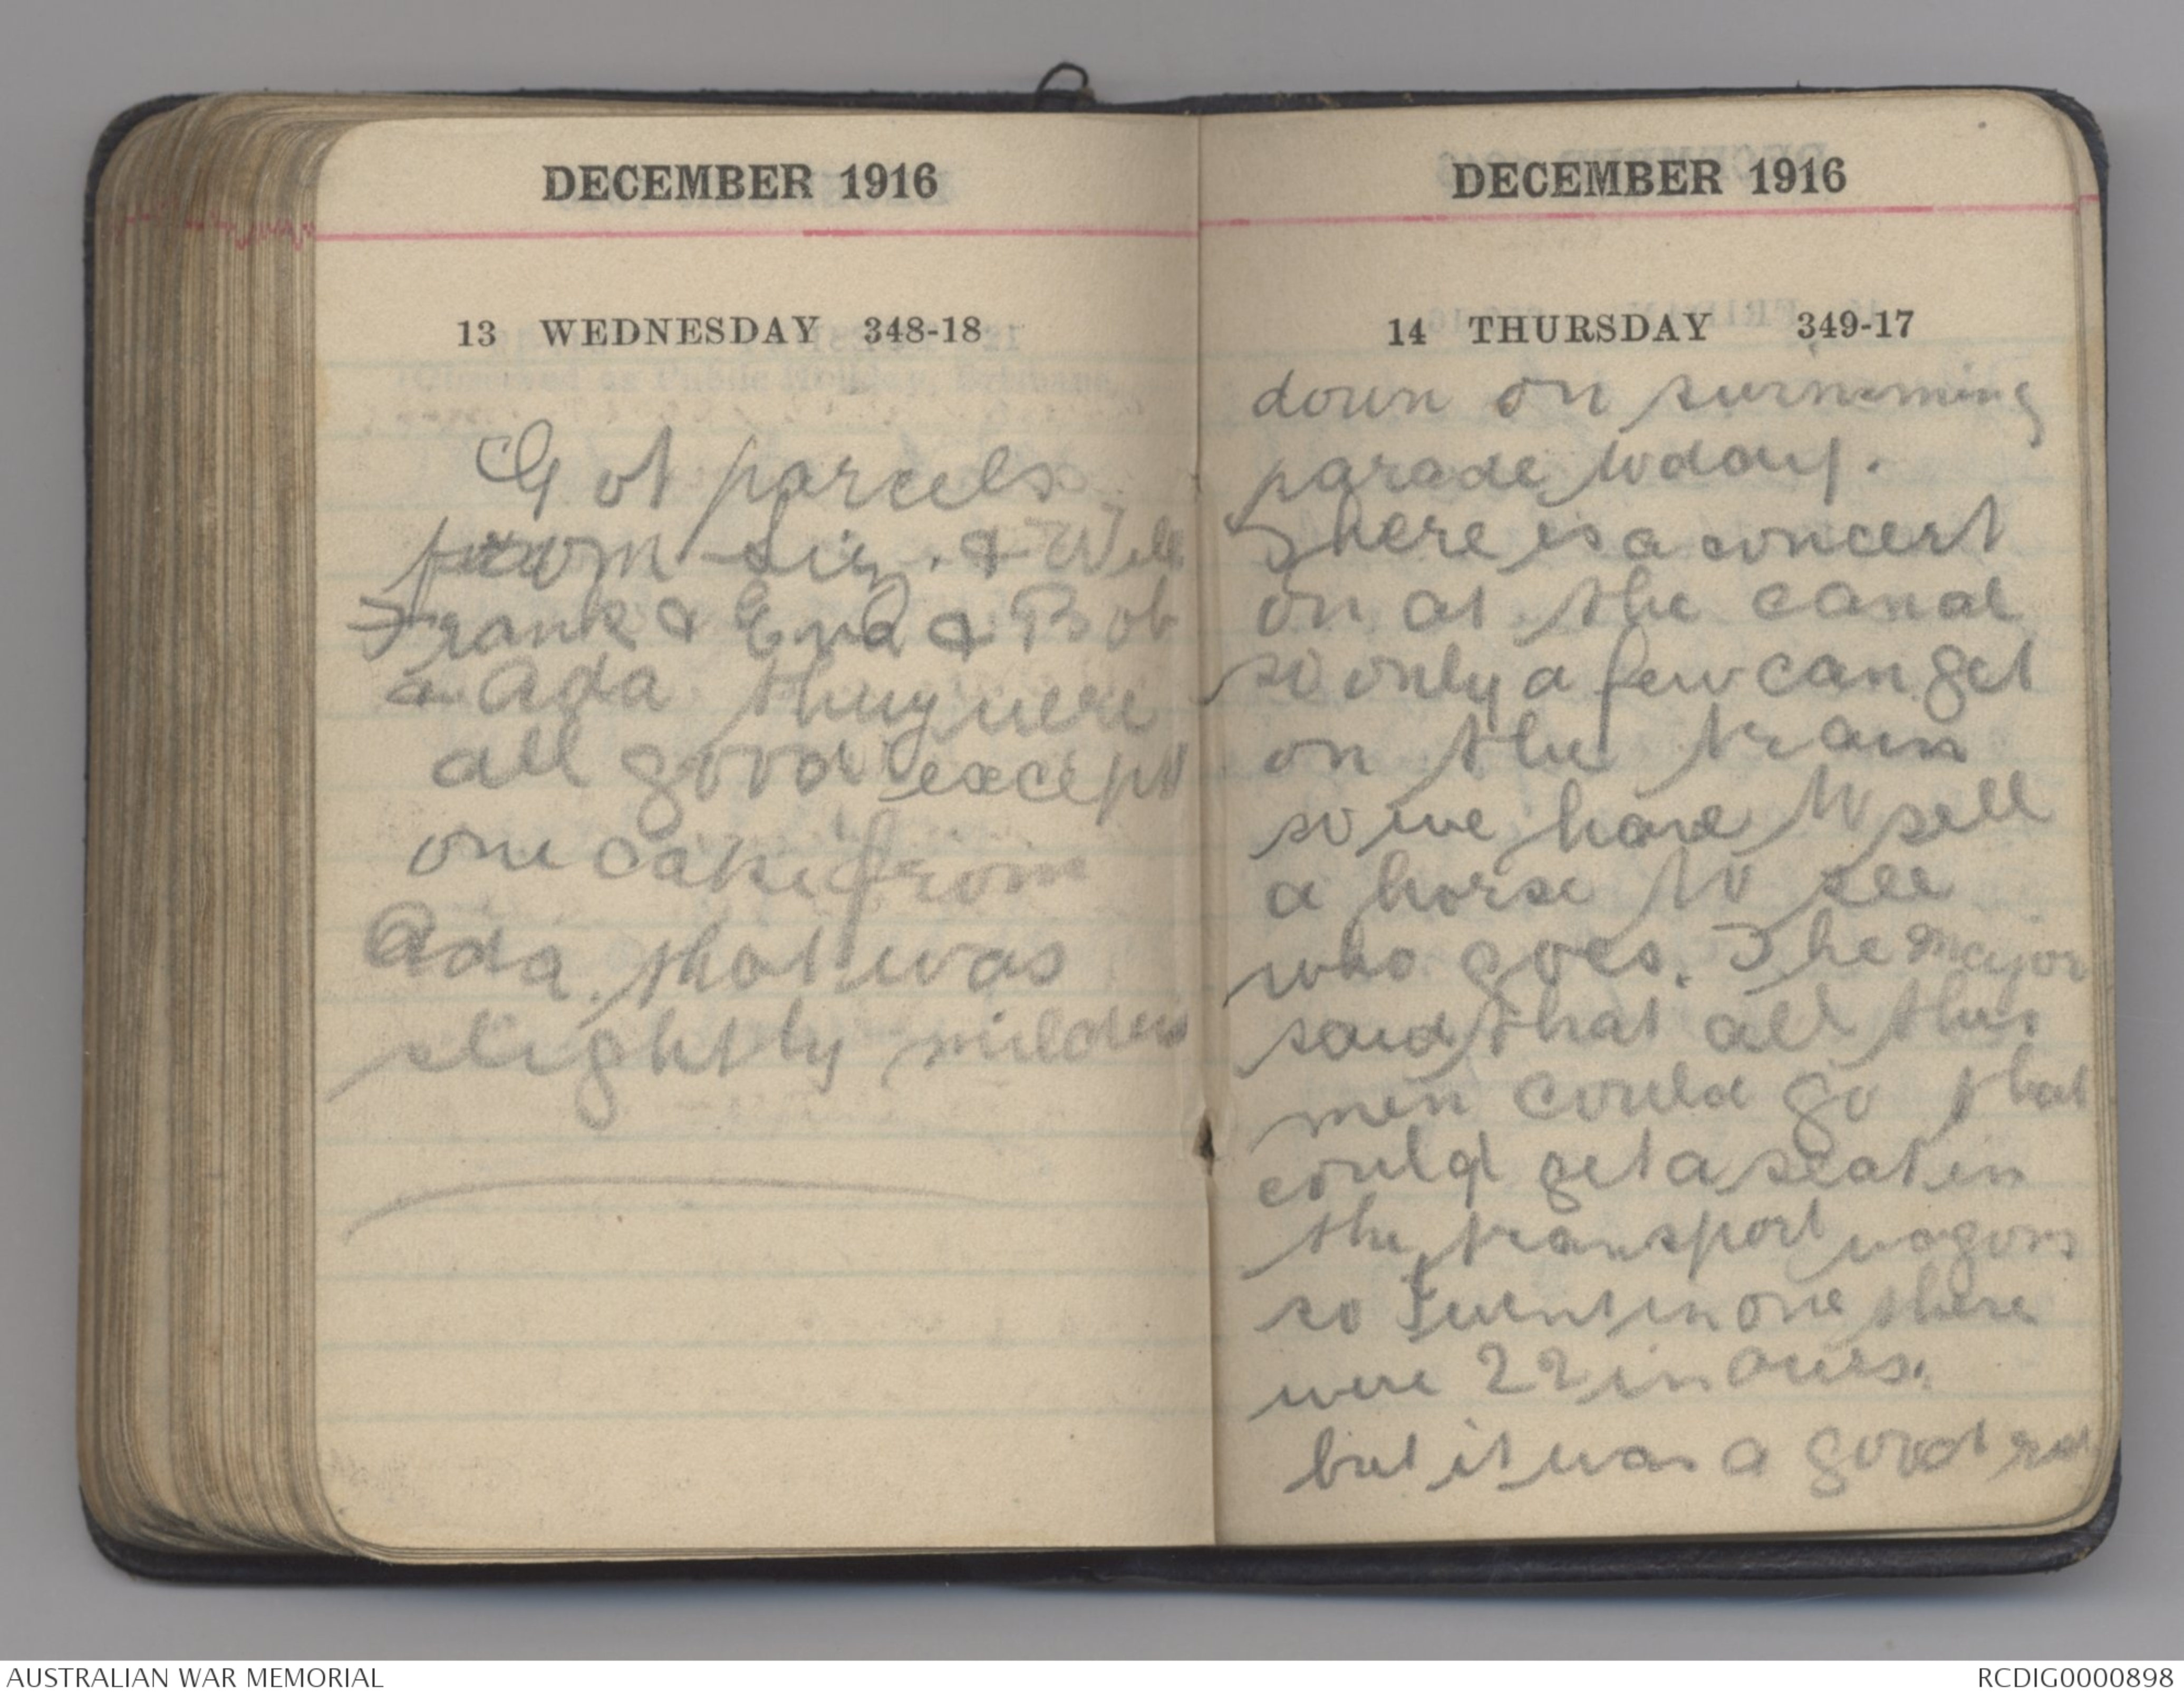 DECEMBER 1916
13 WEDNESDAY 348-18
Got parcels
from & Will
Frank & Eva & Bob
& Ada they were
all good except
one cake from
Ada that was
slightly mildew
DECEMBER 1916
14 THURSDAY 349-17
down on swimming
parade today.
There is a concert
on at the canal
so only a few can get
on the train
so we have to sell
a horse to see
who goes. The Major
said that all the
men could go that
could get a seat in
the transport wagons
so I went in one there
were 22 in ours.
but it was a good
AUSTRALIAN WAR MEMORIAL
RCDIG0000898